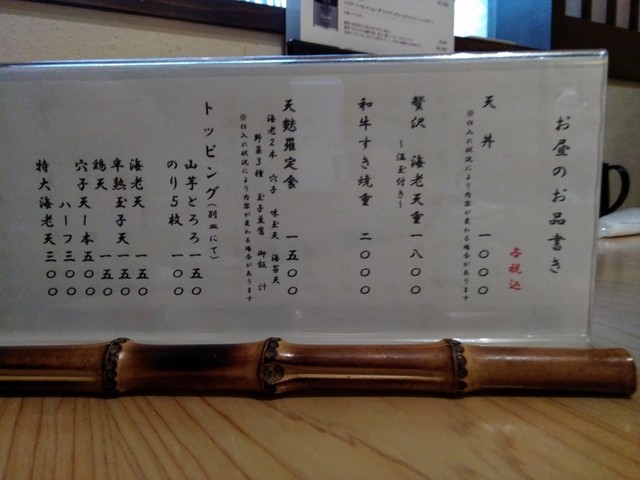 お昼のお品書き
各税込
天丼 一〇〇〇
※仕入れ状況により内容が変わる場合があります
贅沢 海老天重 一八〇〇
~温玉付き~
和牛すき焼重 二〇〇〇
天麩羅定食 一五〇〇
海老2本 穴子 味玉天 海苔天
野菜3種 玉子豆腐 御飯 汁
※仕入れ状況により内容が変わる場合があります
トッピング(別皿にて)
山芋とろろ 一五〇
のり5枚 一〇〇
海老天 一五〇
半熟玉子天 一五〇
鶏天 一五〇
穴子天一本 五〇〇
ハーフ 三〇〇
特大海老天 三〇〇